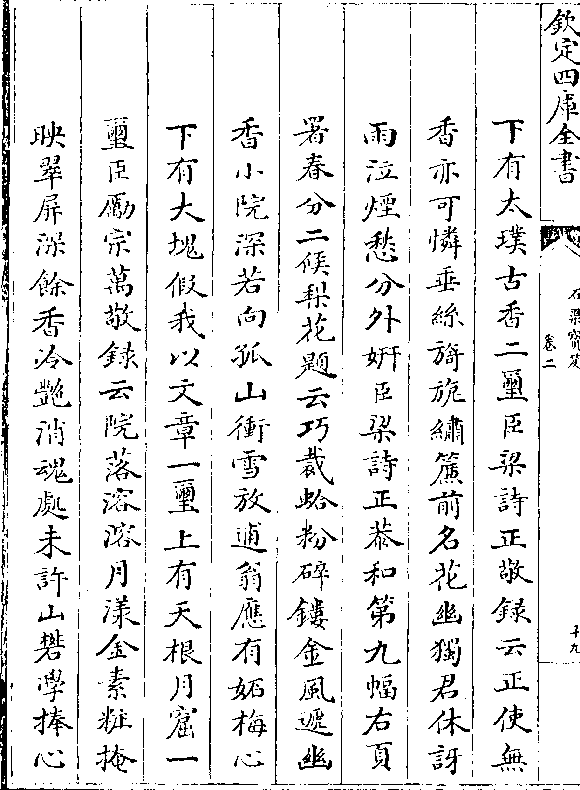 欽定四庫全書
石渠寶笈
卷二
十九
下有太璞古香二璽臣梁詩正敬録云正使無
香亦可憐垂絲旖旎繡簾前名花幽獨君休訝
雨泣煙愁分外妍臣梁詩正恭和第九幅右頁
署春分二候梨花題云巧裁蛤粉碎鏤金風遞幽
香小院深若向孤山衝雪放逋翁應有妬梅心
下有大塊假我以文章一璽上有天根月窟一
璽臣勵宗萬敬録云院落溶溶月漾金素粧掩
映翠屏深餘香冷艷消魂處未許山礬學捧心